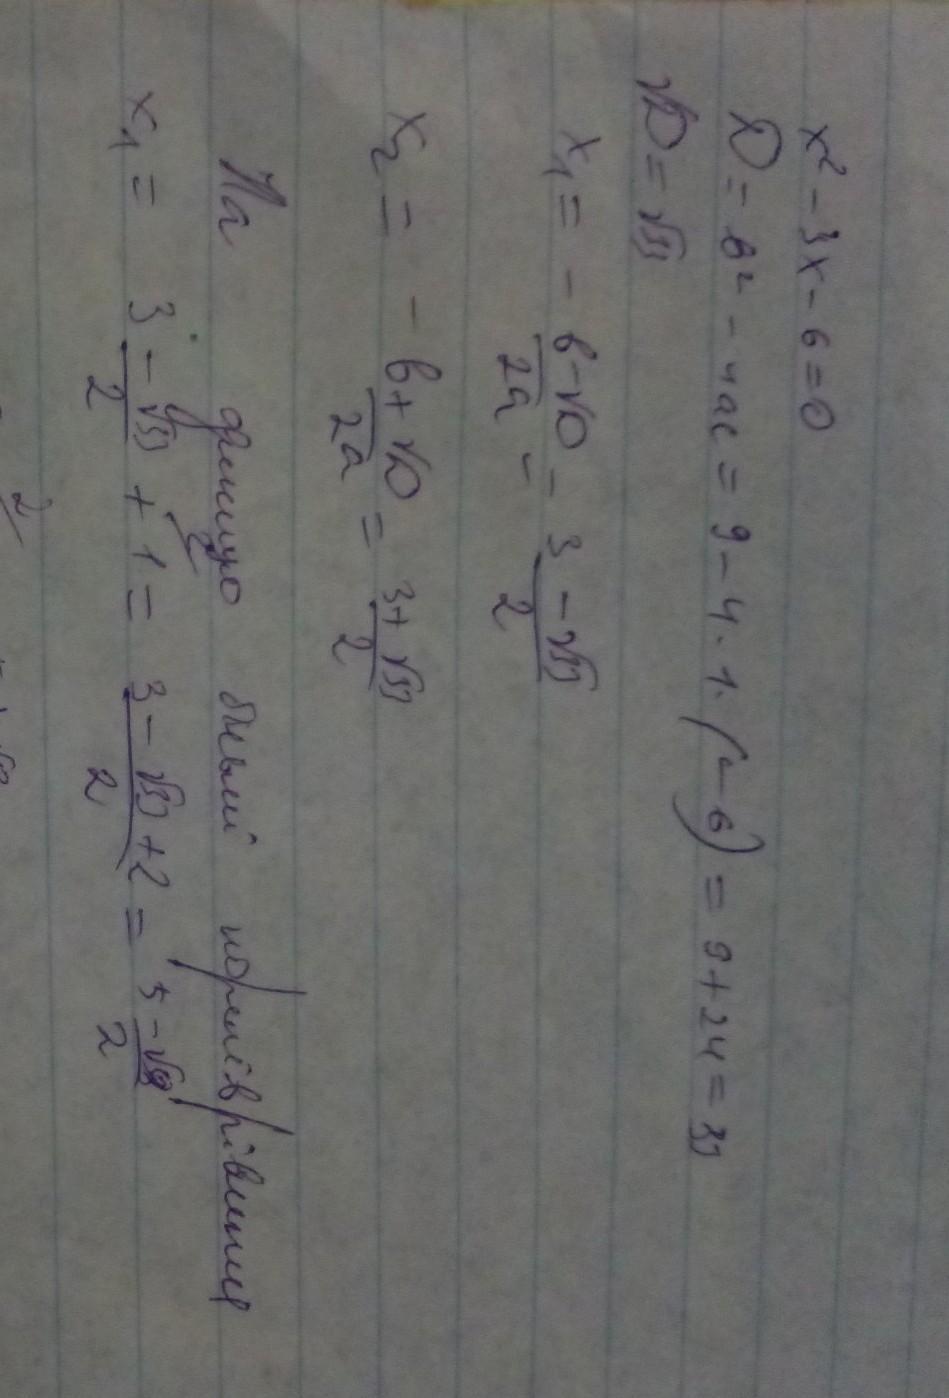 x² - 3x - 6 = 0
D = в² - 4ac = 9 - 4 · 1 · (-6) = 9 + 24 = 33
√D = √33
x₁ = - в - √D / 2a = 3 - √33 / 2
x₂ = - в + √D / 2a = 3 + √33 / 2
На одиницю більші коренів рівняння
x₁ = 3 - √33 / 2 + 1 = 3 - √33 + 2 / 2 = 5 - √33 / 2